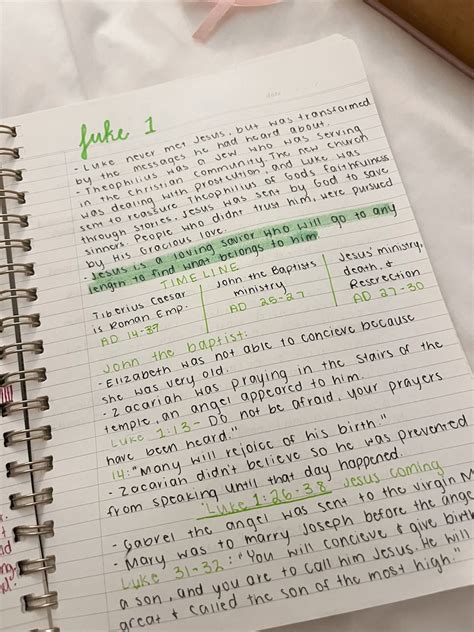 Luke 1
- Luke never met Jesus, but was transformed
by the messages he had heard about.
- Theophilius was a Jew who was serving
in the Christian community. The new church
was dealing with prosecution, and Luke was
sent to reassure Theophilius of Gods faithfulness
through stories. Jesus was sent by God to save
sinners. People who didnt trust him, were pursued
by His Gracious love.
- Jesus is a loving savior who will go to any
length to find what belongs to him.
TIMELINE
Tiberius Caesar
is Roman Emp.
AD 14-37
John the Baptists
ministry
AD 25-27
Jesus' ministry,
death, &
Reserection
AD 27-30
John the baptist:
- Elizabeth was not able to concieve because
she was very old.
- Zacariah was praying in the stairs of the
temple, an angel appeared to him.
Luke 1:13- Do not be afraid, your prayers
have been heard."
14: "Many will rejoice of his birth."
- Zacariah didn't believe so he was prevented
from speaking until that day happened.
Luke 1:26-38 Jesus coming
- Gabrel the angel was sent to the virgin
- Mary was to marry Joseph before the
Luke 31-32: "You will concieve & give
a son, and you are to call him Jesus. He will
great & called the son of the most high."